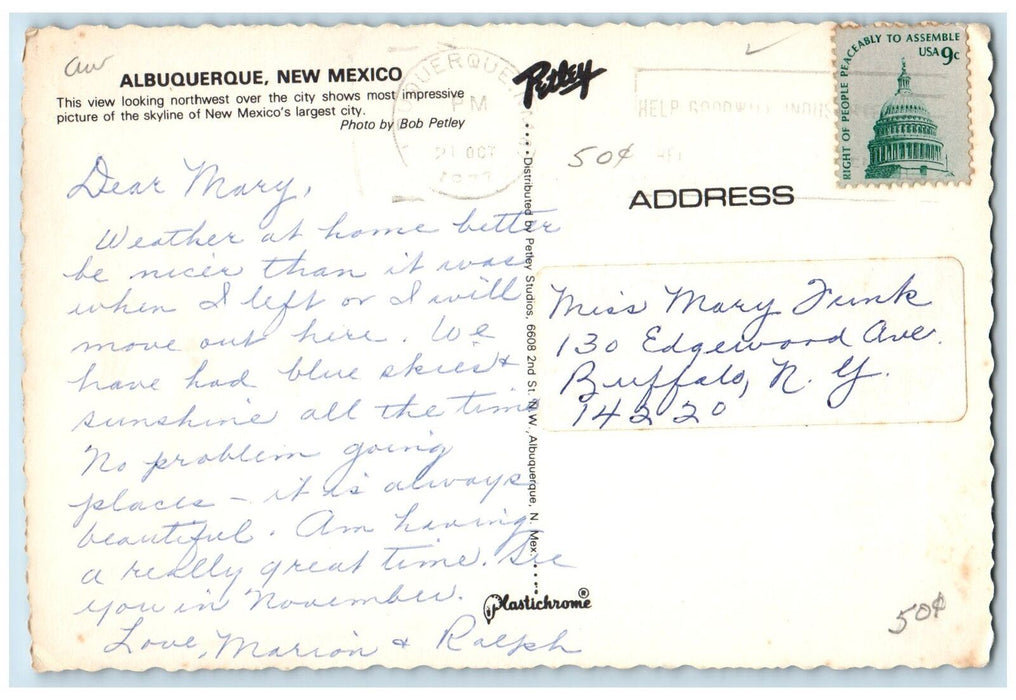 aw
ALBUQUERQUE, NEW MEXICO
This view looking northwest over the city shows most impressive
picture of the skyline of New Mexico's largest city.
Photo by Bob Petley
Dear Mary,
Weather at home better
be nicer than it was
when I left or I will
move out here. We
have had blue skies &
sunshine all the time
No problem going
places – it is always
beautiful. Am having
a really great time. See
you in November.
Love, Marion & Ralph
Petley
Distributed by Petley Studios, 6608 2nd St. N.W., Albuquerque, N. Mex.
Plastichrome®
PM
21 OCT
HELP GOODWILL
RIGHT OF PEOPLE PEACEABLY TO ASSEMBLE
USA 9c
50¢
ADDRESS
Miss Mary Funk
130 Edgewood Ave.
Buffalo, N. Y.
14220
50¢